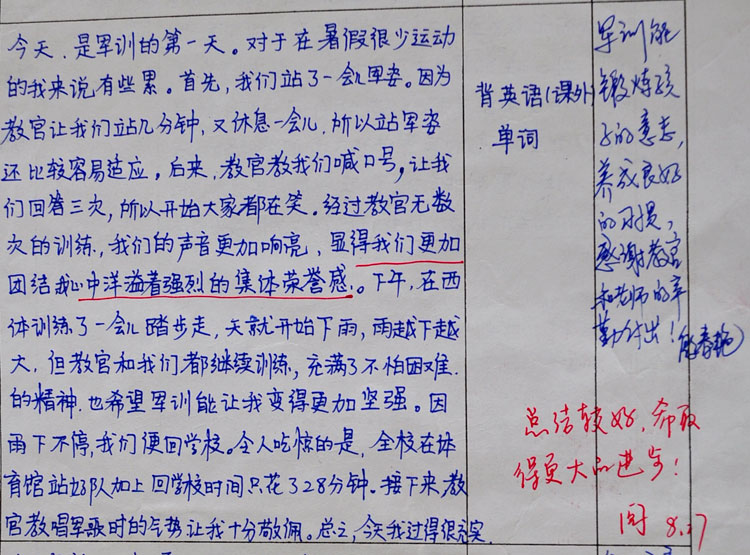 今天.是军训的第一天。对于在暑假很少运动
的我来说有些累。首先,我们站了一会儿军姿。因为
教官让我们站几分钟,又休息一会儿,所以站军姿
还比较容易适应。后来,教官教我们喊口号,让我
们回答三次,所以开始大家都在笑.经过教官无数
次的训练,我们的声音更加响亮,显得我们更加
团结我心中洋溢着强烈的集体荣誉感。下午,在西
体训练了一会儿踏步走,天就开始下雨,雨越下越
大,但教官和我们都继续训练,充满了不怕困难.
的精神.也希望军训能让我变得更加坚强。因
雨下不停,我们便回学校。令人吃惊的是,全校在体
育馆站好队加上回学校时间只花了28分钟.接下来,教
官教唱军歌时的气势让我十分敬佩。总之,今天我过得很充实
背英语(课外)
单词
军训能
锻炼孩
子的意志,
养成良好
的习惯,
感谢教官
和老师的辛
勤付出!
春艳
总结较好,希取
得更大的进步!
8.27